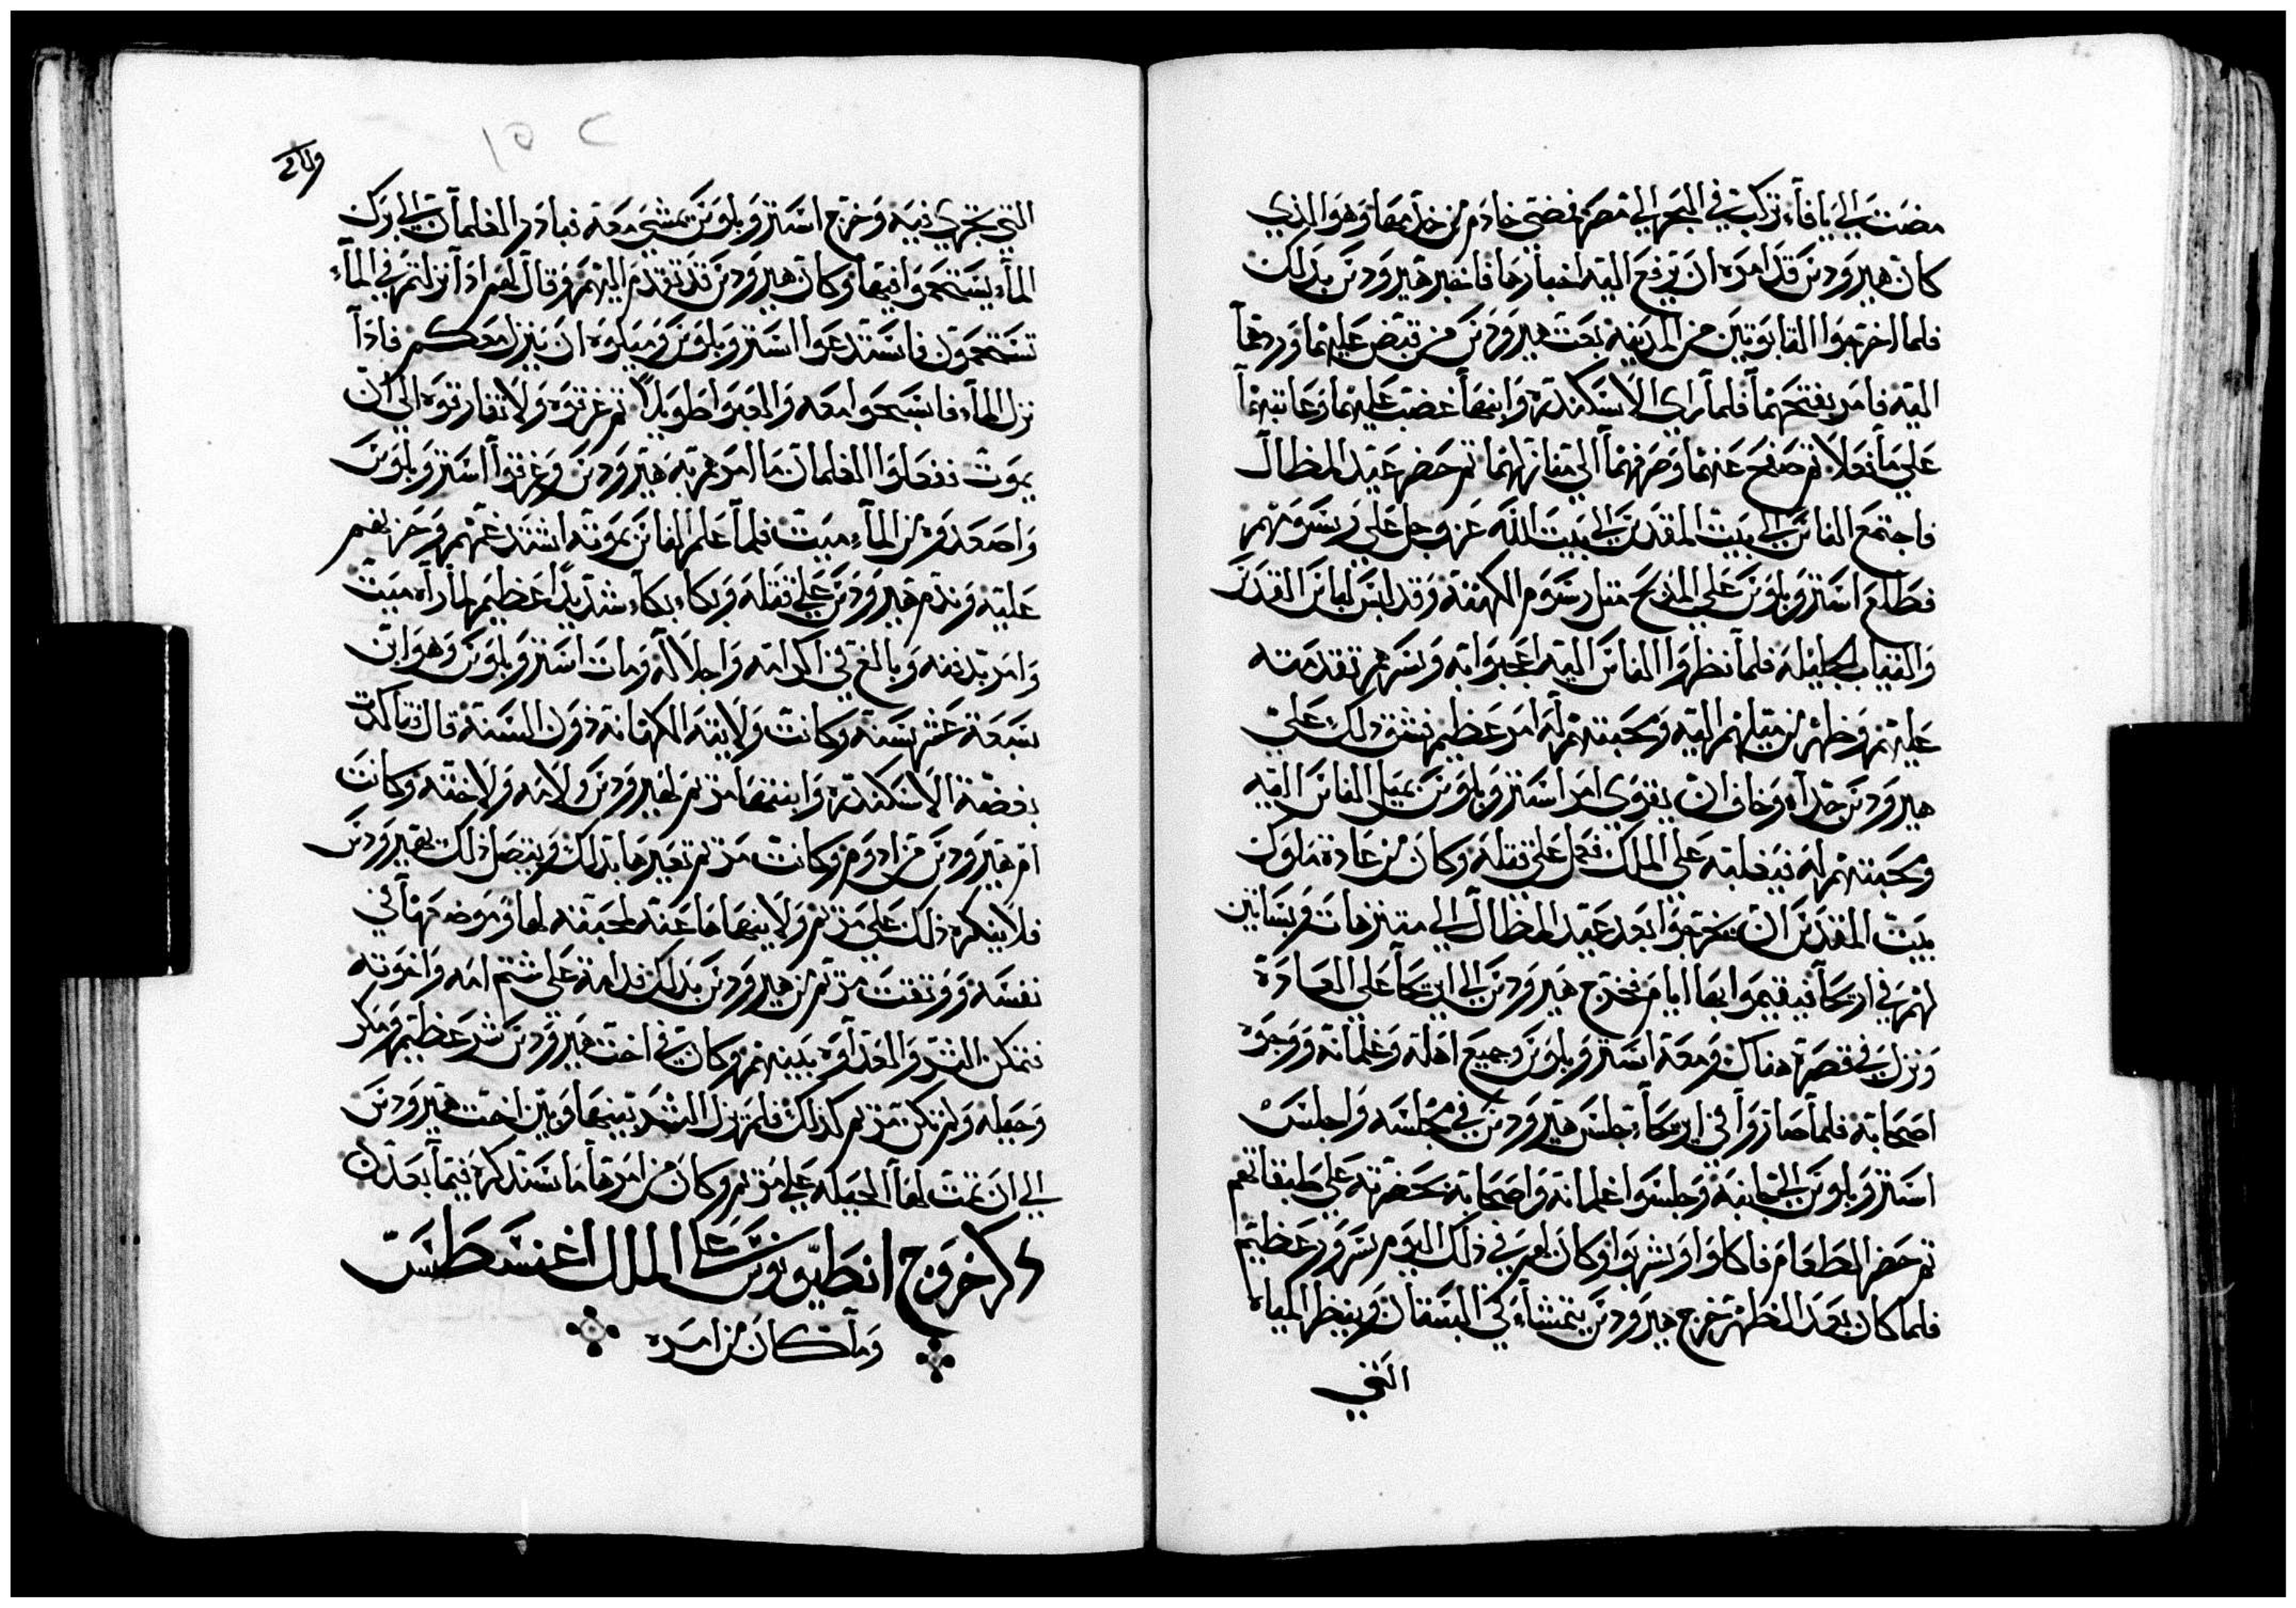 مضت الي يافا تركب في البحر الي مصر فمضي خادم من خدامها وهو الذي
كان هيرودس قد امره ان يرفع اليه اخبارها فاخبر هيرودس بذلك
فلما اخرجوا التابوتين من المدينه بعث هيرودس من قبض عليهما وردهما
اليه فامر بفتحهما فلما راي الاسكندره وابنها غضب عليهما وعاتبهما
علي ما فعلا ثم صفح عنهما وصرفهما الي منازلهما ثم حضر عيد المظال
فاجتمع الناس الي بيت المقدس الي بيت الله عز وجل علي رسومهم
فطلع استروبلوس علي المذبح مثل رسوم الكهنه وقد لبس لباس القدس
والثياب الجليله فلما نظروا الناس اليه اعجبوا به وسرهم تقدمته
عليهم وظهر من ميلهم اليه ومحبتهم له امر عظيم فشق ذلك علي
هيرودس جدا وخاف ان يقوي امر استروبلوس بميل الناس اليه
ومحبتهم له فيغلبه علي الملك فعمل علي قتله وكان من عادة ملوك
بيت المقدس ان يخرجوا بعد عيد المظال الي متنزهات وبساتين
لهم في اريحا فيقيموا بها ايام فخرج هيرودس الي اريحا علي العادة
ونزل في قصره هناك ومعه استروبلوس وجميع اهله وغلمانه ووجوه
اصحابه فلما صاروا في اريحا جلس هيرودس في مجلسه واجلس
استروبلوس الي جانبه وجلسوا غلمانه واصحابه بحضرته علي طبقاتهم
ثم حضر الطعام فاكلوا وشربوا وكان لهم في ذلك اليوم سرور عظيم
فلما كان بعد الظهر خرج هيرودس يتمشاء في البستان وينظر المياه
التي
١٥٢
التي تجري فيه وخرج استروبلوس يمشي معه فبادر الغلمان الي برك
الماء يستحموا فيها وكان هيرودس قد تقدم اليهم وقال لهم اذا نزلتم في الماء
تستحمون فاستدعوا استروبلوس وميلوه ان ينزل معكم فاذا
نزل الماء فاسبحوا معه والعبوا طويلا ثم غرقوه ولا تفارقوه الي ان
يموت ففعلوا الغلمان ما امرهم به هيرودس وغرقوا استروبلوس
واصعدوه من الماء ميت فلما علم الناس بموته اشتد غمهم وحزنهم
عليه وندم هيرودس علي قتله وبكاء بكاء شديدا عظيم لما راه ميت
وامر بدفنه وبالغ في اكرامه واجلاله ومات استروبلوس وهو ابن
سبعة عشر سنه وكانت ولايته الكهانه دون السنة قال فتاكدت
بغضة الاسكندره وابنتها مريم لهيرودس ولامه ولاخته وكانت
ام هيرودس من ادوم وكانت مريم تعيرها بذلك ويتصل ذلك بهيرودس
فلا ينكر ذلك علي مريم ولا ينهاها عنه لمحبته لها وموضعها في
نفسه ووثقت مريم من هيرودس بذلك فدامت علي شتم امه واخوته
فتمكن الشر والعداوه بينهم وكان في اخت هيرودس شر عظيم ومكر
وحيله ولم تكن مريم كذلك فلم يزل الشر بينها وبين اخت هيرودس
الي ان تمت لها الحيله علي مريم وكان من امرها ما سنذكره فيما بعد ان
ذكر خروج انطيونوس علي الملك اغسطس
وما كان من امره